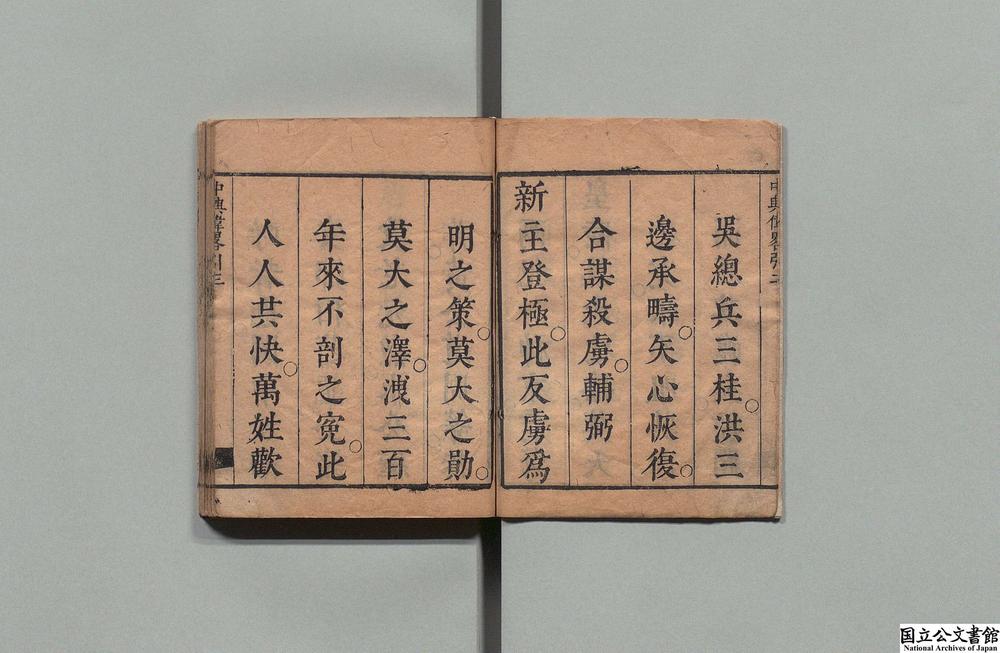 吳總兵三桂。洪三
邊承疇。矢心恢復。
合謀殺虜。輔弼
新主登極。此反虜爲
明之策。莫大之勛。
莫大之澤。洩三百
年來不剖之冤。此
人人共快。萬姓歡
中興偉畧引三
国立公文書館
National Archives of Japan